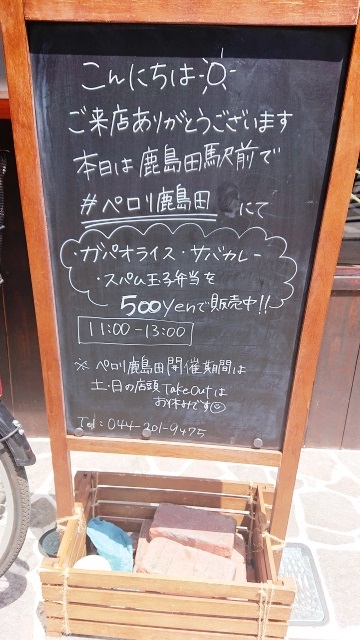 こんにちは
ご来店ありがとうございます
本日は鹿島田駅前で
#ペロリ鹿島田 にて
・ガパオライス・サバカレー
・スパム玉子弁当を
500yenで販売中!!
11:00-13:00
※ ペロリ鹿島田開催期間は
土・日の店頭TakeOutは
お休みです
Tel:044-201-9475